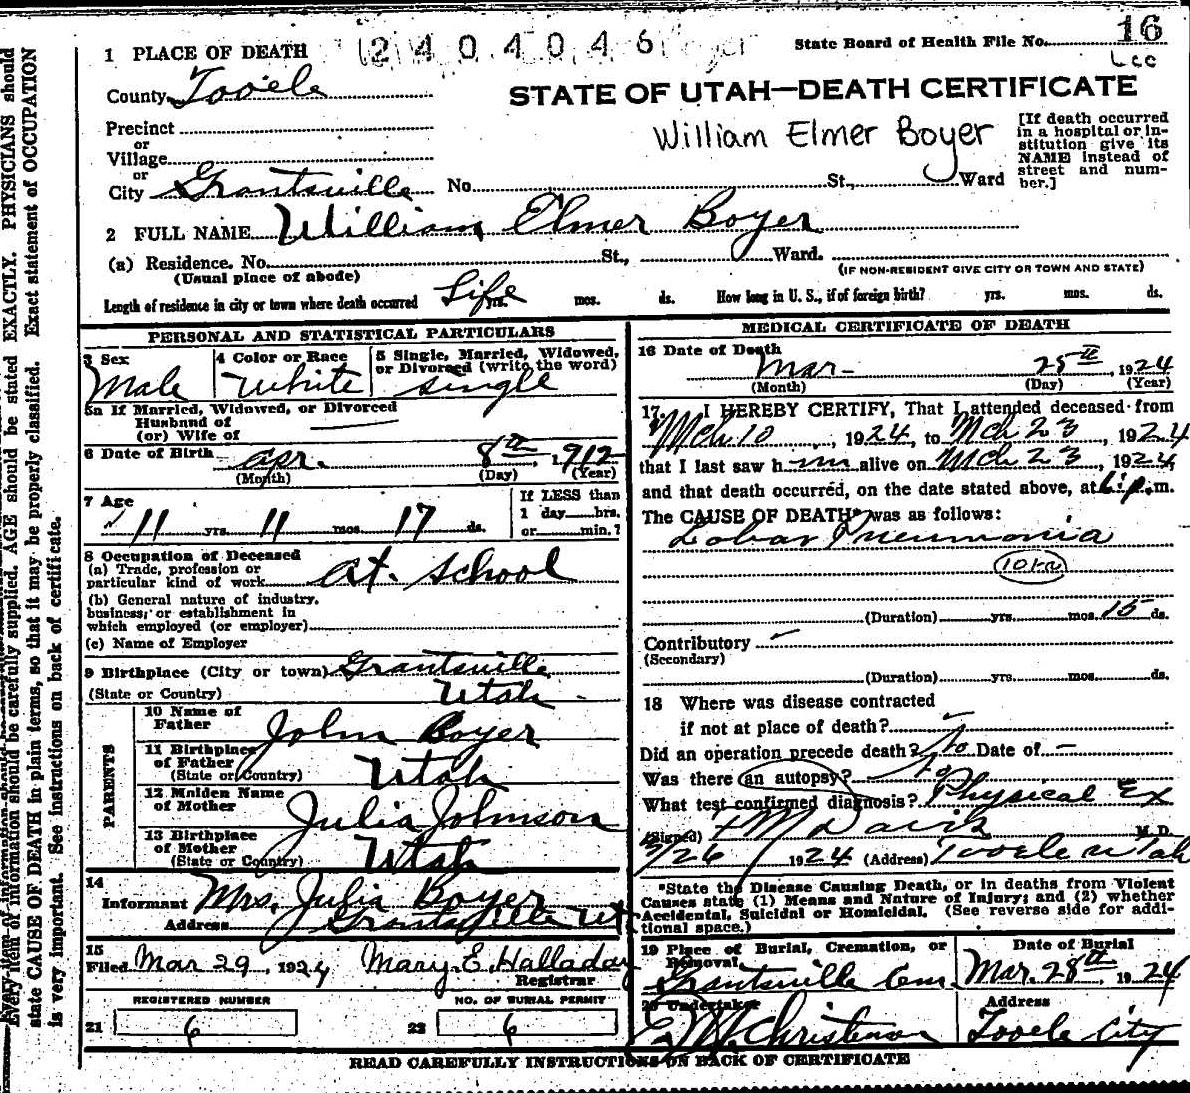 1 PLACE OF DEATH 12404046 State Board of Health File No. 16
County Tooele
STATE OF UTAH—DEATH CERTIFICATE
Precinct
or
Village
or
City Grantsville No. St., Ward
William Elmer Boyer
[If death occurred in a hospital or institution give its NAME instead of street and number.]
2 FULL NAME William Elmer Boyer
(a) Residence. No. St., Ward.
(Usual place of abode) (IF NON-RESIDENT GIVE CITY OR TOWN AND STATE)
Length of residence in city or town where death occurred Life yrs. mos. ds. How long in U. S., if of foreign birth? yrs. mos. ds.
PERSONAL AND STATISTICAL PARTICULARS
3 Sex Male
4 Color or Race White
5 Single, Married, Widowed, or Divorced (write the word) Single
5a If Married, Widowed, or Divorced
Husband of
(or) Wife of
6 Date of Birth Apr. 8th, 1912
(Month) (Day) (Year)
7 Age 11 yrs. 11 mos. 17 ds.
If LESS than
1 day hrs.
or min.?
8 Occupation of Deceased
(a) Trade, profession or
particular kind of work at. school
(b) General nature of industry,
business, or establishment in
which employed (or employer)
(c) Name of Employer
9 Birthplace (City or town) Grantsville
(State or Country) Utah
PARENTS
10 Name of Father John Boyer
11 Birthplace of Father (State or Country) Utah
12 Maiden Name of Mother Julia Johnson
13 Birthplace of Mother (State or Country) Utah
14
Informant Mrs. Julia Boyer
Address Grantsville Ut
15
Filed Mar 29, 1924 Mary E. Halladay
Registrar
REGISTERED NUMBER NO. OF BURIAL PERMIT
21 6 22 6
MEDICAL CERTIFICATE OF DEATH
16 Date of Death Mar- 25th, 1924
(Month) (Day) (Year)
17 I HEREBY CERTIFY, That I attended deceased from
Mch 10, 1924, to Mch 23, 1924
that I last saw him alive on Mch 23, 1924,
and that death occurred, on the date stated above, at 6 p. m.
The CAUSE OF DEATH* was as follows:
Lobar Pneumonia
(Duration) yrs. mos. 15 ds.
Contributory
(Secondary)
(Duration) yrs. mos. ds.
18 Where was disease contracted
if not at place of death?
Did an operation precede death? No Date of -
Was there an autopsy? No
What test confirmed diagnosis? Physical Ex
(Signed) Davis M.D.
3/26 1924 (Address) Tooele Utah
*State the Disease Causing Death, or in deaths from Violent
Causes state (1) Means and Nature of Injury; and (2) whether
Accidental, Suicidal or Homicidal. (See reverse side for additional space.)
19 Place of Burial, Cremation, or Removal, Grantsville Cem.
Date of Burial Mar. 28th, 1924
20 Undertaker Christenson
Address Tooele City
READ CAREFULLY INSTRUCTIONS ON BACK OF CERTIFICATE
Every item of information should be carefully supplied. AGE should be stated EXACTLY. PHYSICIANS should
state CAUSE OF DEATH in plain terms, so that it may be properly classified. Exact statement of OCCUPATION
is very important. See instructions on back of certificate.